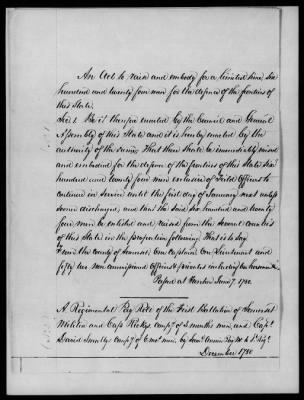 An Act to raise and embody for a limited time six
hundred and twenty four men for the defence of the frontiers of
this State.
Sec 1. Be it therefore enacted by the Council and General
Assembly of this State and it is hereby enacted by the
authority of the same, That there shall be immediately raised
and embodied for the defence of the frontiers of this State, six
hundred and twenty four men exclusive of Field Officers to
continue in service until the first day of January next unless
sooner discharged, and that the said six hundred and twenty
four men be enlisted and raised from the several counties
of this State in the proportion following, That is to say
From the county of Somerset, One Captain One Lieutenant and
fifty two non commissioned Officers & privates
Passed at Trenton June 7. 1780.
A Regimental Pay Role of the First Battalion of Somerset
Militia and Capt Rickys compy of 3 months men, and Capt
David Smalys compy of 6 mo. men, by
December 1780